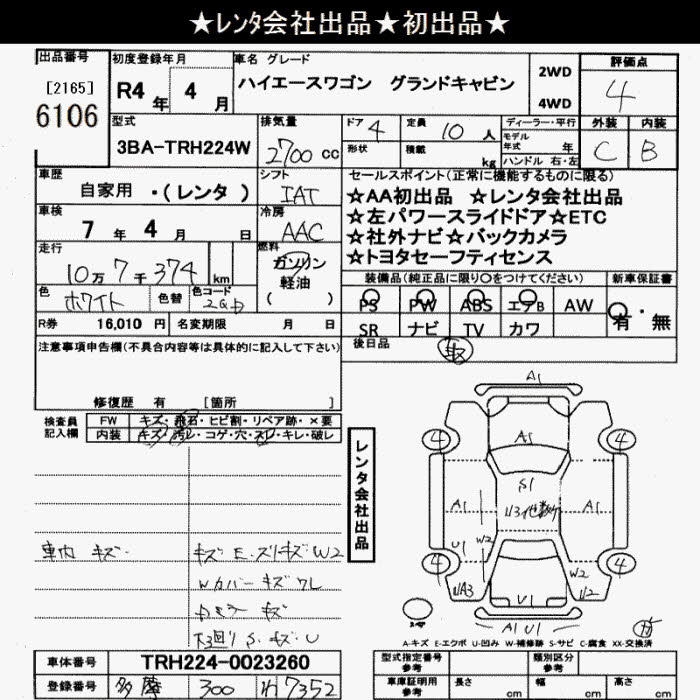 ★レンタ会社出品★初出品★
出品番号 初度登録年月 車名 グレード 評価点
[2165] R4年 4月 ハイエースワゴン グランドキャビン 2WD 4
6106 4WD
型式 排気量 ドア 4 定員 10人 ディーラー・平行 外装 内装
3BA-TRH224W 2700cc 形状 積載 kg モデル年式 年 C B
ハンドル 右・左
車歴 シフト セールスポイント(正常に機能するものに限る)
自家用 ・(レンタ) IAT ☆AA初出品 ☆レンタ会社出品
車検 冷房 ☆左パワースライドドア☆ETC
7年 4月 日 AAC ☆社外ナビ☆バックカメラ
走行 燃料 ☆トヨタセーフティセンス
10万7千374km ガソリン 軽油 ( )
装備品(純正品に限り〇をつけてください) 新車保証書
色 ホワイト 色替 色コード PS PW ABS エアB AW 有・無
R券 16,010円 名変期限 月 日 SR ナビ TV カワ
注意事項申告欄(不具合内容等は具体的に記入して下さい) 後日品 取
修復歴 有 [箇所 ]
検査員記入欄 FW キズ・飛石・ヒビ割・リペア跡・×要
内装 キズ・汚レ・コゲ・穴・スレ・キレ・破レ
レンタ会社出品
A1
4 4
A1
S1
A1 U3他数ヶ所 A1
U1 W2
4 4
UA3 W2 U2
U1
A1 U1
車内 キズ・ キズ E・スリキズ W2
Wカバー キズ ワレ
下廻り S・キズ・U
A-キズ E-エクボ U-凹み W-補修跡 S-サビ C-腐食 XX-交換済
車体番号 TRH224-0023260 型式指定番号 参考 類別区分 参考
登録番号 多摩 300 わ 7352 車庫証明用 参考 長さ cm 幅 cm 高さ cm